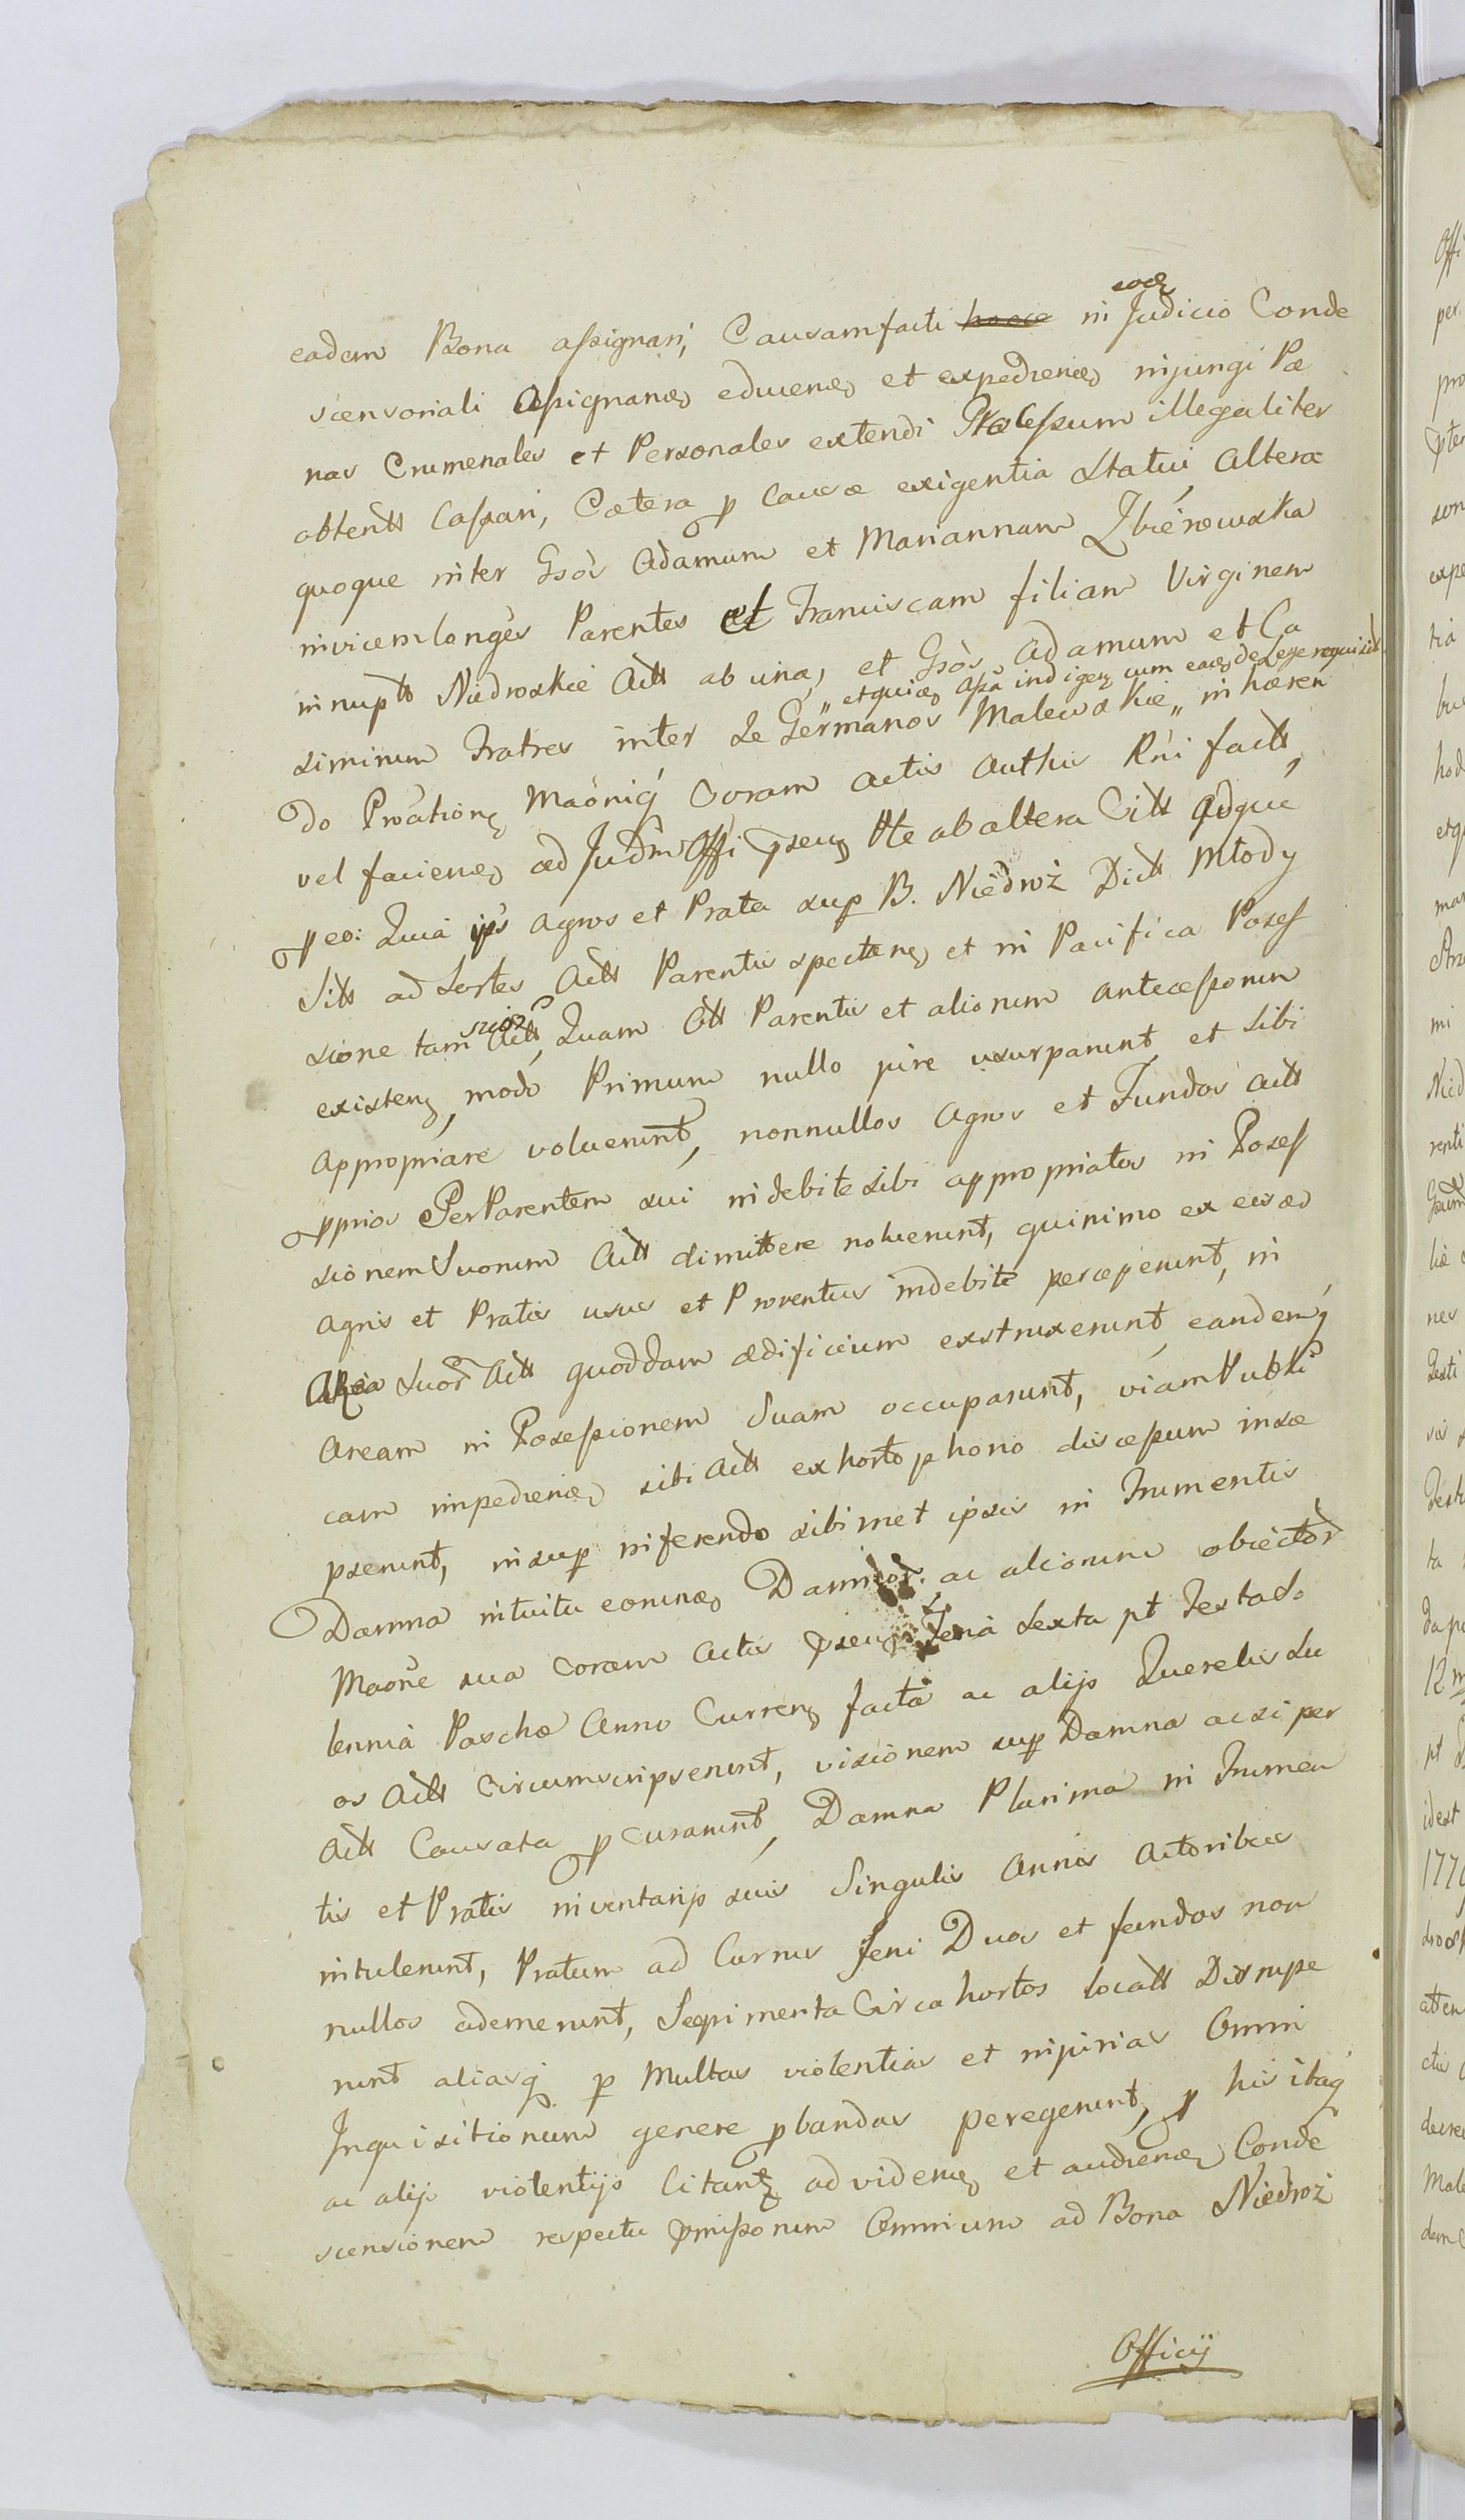 eadem Bona assignari, Causam facti hocce in eod Judicio Conde
scensoriali assignand educend et expediend injungi Pœ
nas Crumenales et Personales extendi Processum illegaliter
obtentt Cassari, Cætera p Causæ exigentia Statui, Altera
quoque inter Gsos Adamum et Mariannam Zbierowskie
invicem Conges Parentes et Franciscam filiam Virginem
innuptt Niedroskie Actt ab una, et Gsos Adamum et Ca
„ et quia ipsa indiget cum eaod de Lege requisitt
simirum Fratres inter Se Germanos Malewskie „ inhæren
do Proationi Maoniq Coram actis Authis Rni factt,
vel faciend ad Judm Offi psens Tte ab altera Citt Idque
p eo: Quia ips Agros et Prata sup B. Niedroż Dictt Młody
Sitt ad Sortes Actt Parentis spectan et in Pacifica Posses
sione tam suor Actt, Quam Citt Parentis et aliorum antecessorum
existen, modo Primum nullo jure usurparunt, et Sibi
Appropriare voluerunt, nonnullos Agros et Fundos Actt
pprios Per Parentem sui indebite sibi appropriatos in Posses
sionem Suorum Actt dimittere noluerunt, quinimo ex eisd
Agris et Pratis usus et Proventus indebite perceperunt, in
Area Suor Actt quoddam ædificium exstruxerunt, eandemq
Aream in Possessionem Suam occuparunt, viam Publi
cam impediend sibi Actt ex horto p hono discessum insæ
pserunt, insup inferendo sibimet ipsis in Frumentis
Damna intuitu eorund Damnor. ac aliorum obiector
Maone sua coram Actis psen Feria Sexta pt Festa So
lennia Paschæ Anno Curren facta ac alijs Querelis Su
os Actt Circumscripserunt, visionem sup Damna ac si per
Actt Causata pcurarunt, Damna Plurima in Frumen
tis et Pratis inventarijs suis Singulis Annis Actoribus
intulerunt, Pratum ad Currus Feni Duos et fundos non
nullos ademerunt, Sepimenta Circa hortos locatt Disrupe
runt aliasq p Multas violentias et injurias Omni
Inquisitionum genere pbandas peregerunt, p his itaq
ac alijs violentijs Citant ad videnđ et audienđ Conde
scensionem respectu pmissorum Omnium ad Bona Niedroż
Officij